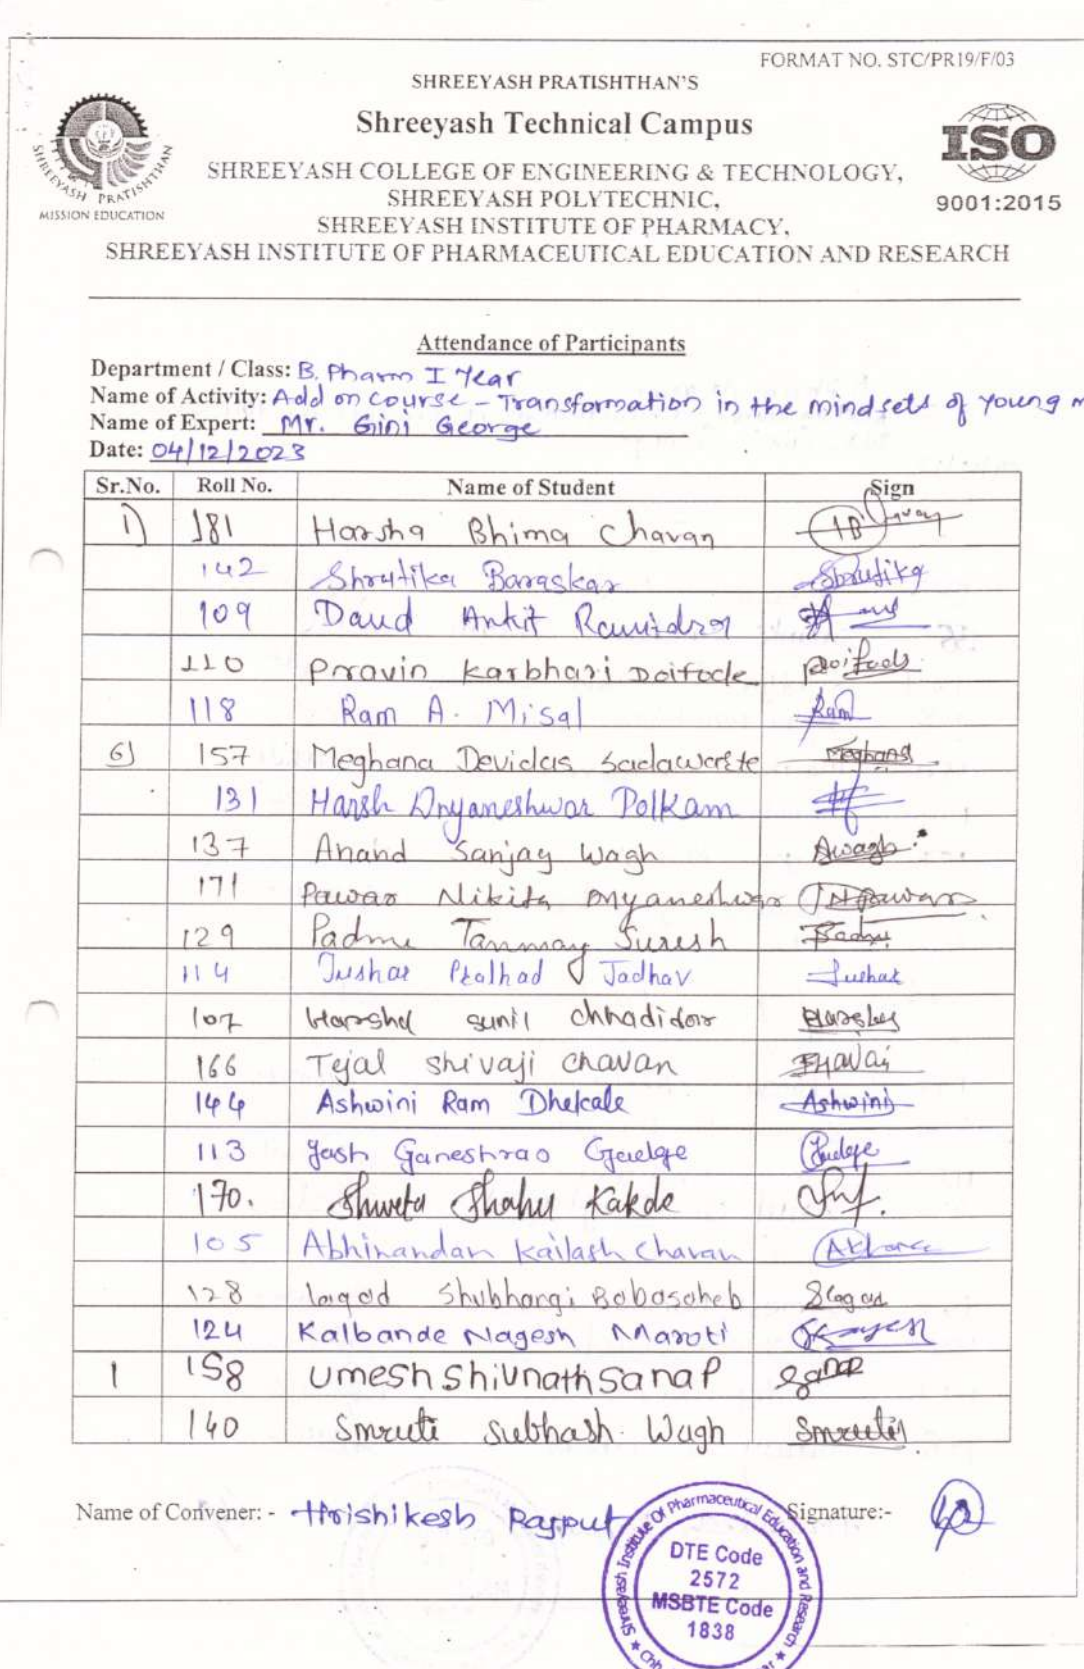 FORMAT NO. STC/PR19/F/03
SHREEYASH PRATISHTHAN'S
Shreeyash Technical Campus
SHREEYASH COLLEGE OF ENGINEERING & TECHNOLOGY,
SHREEYASH POLYTECHNIC,
SHREEYASH INSTITUTE OF PHARMACY,
SHREEYASH INSTITUTE OF PHARMACEUTICAL EDUCATION AND RESEARCH
SHREEYASH PRATISHTHAN
MISSION EDUCATION
ISO
9001:2015
Attendance of Participants
Department / Class: B. Pharm I Year
Name of Activity: Add on course - Transformation in the mindsets of young m
Name of Expert: Mr. Gini George
Date: 04/12/2023
Sr.No. Roll No. Name of Student Sign
1) 181 Harsha Bhima Chavan
142 Shrutika Baraskar Shrutika
109 Daud Ankit Ravindra
110 Pravin Karbhari Doifode Doifode
118 Ram A. Misal Ram
6) 157 Meghana Devidas Sadawarte Meghana
131 Harsh Dnyaneshwar Polkam
137 Anand Sanjay Wagh Awagh
171 Pawar Nikita Dnyaneshwar NPawar
129 Padme Tanmay Suresh Padme
114 Tushar Pralhad Jadhav Tushar
107 Harshal sunil chhadidar
166 Tejal shivaji chavan
144 Ashwini Ram Dhekale Ashwini
113 Yash Ganeshrao Gudge
170. Shweta Shahu Kakde
105 Abhinandan Kailash Chavan
128 lagad Shubhangi Babasaheb Slagad
124 Kalbande Nagesh Maroti
1 158 Umesh Shivnath Sanap Sanap
140 Smruti Subhash Wagh Smruti
Name of Convener: - Hrishikesh Rajput Signature:-
Shreeyash Institute Of Pharmaceutical Education and Research
DTE Code
2572
MSBTE Code
1838